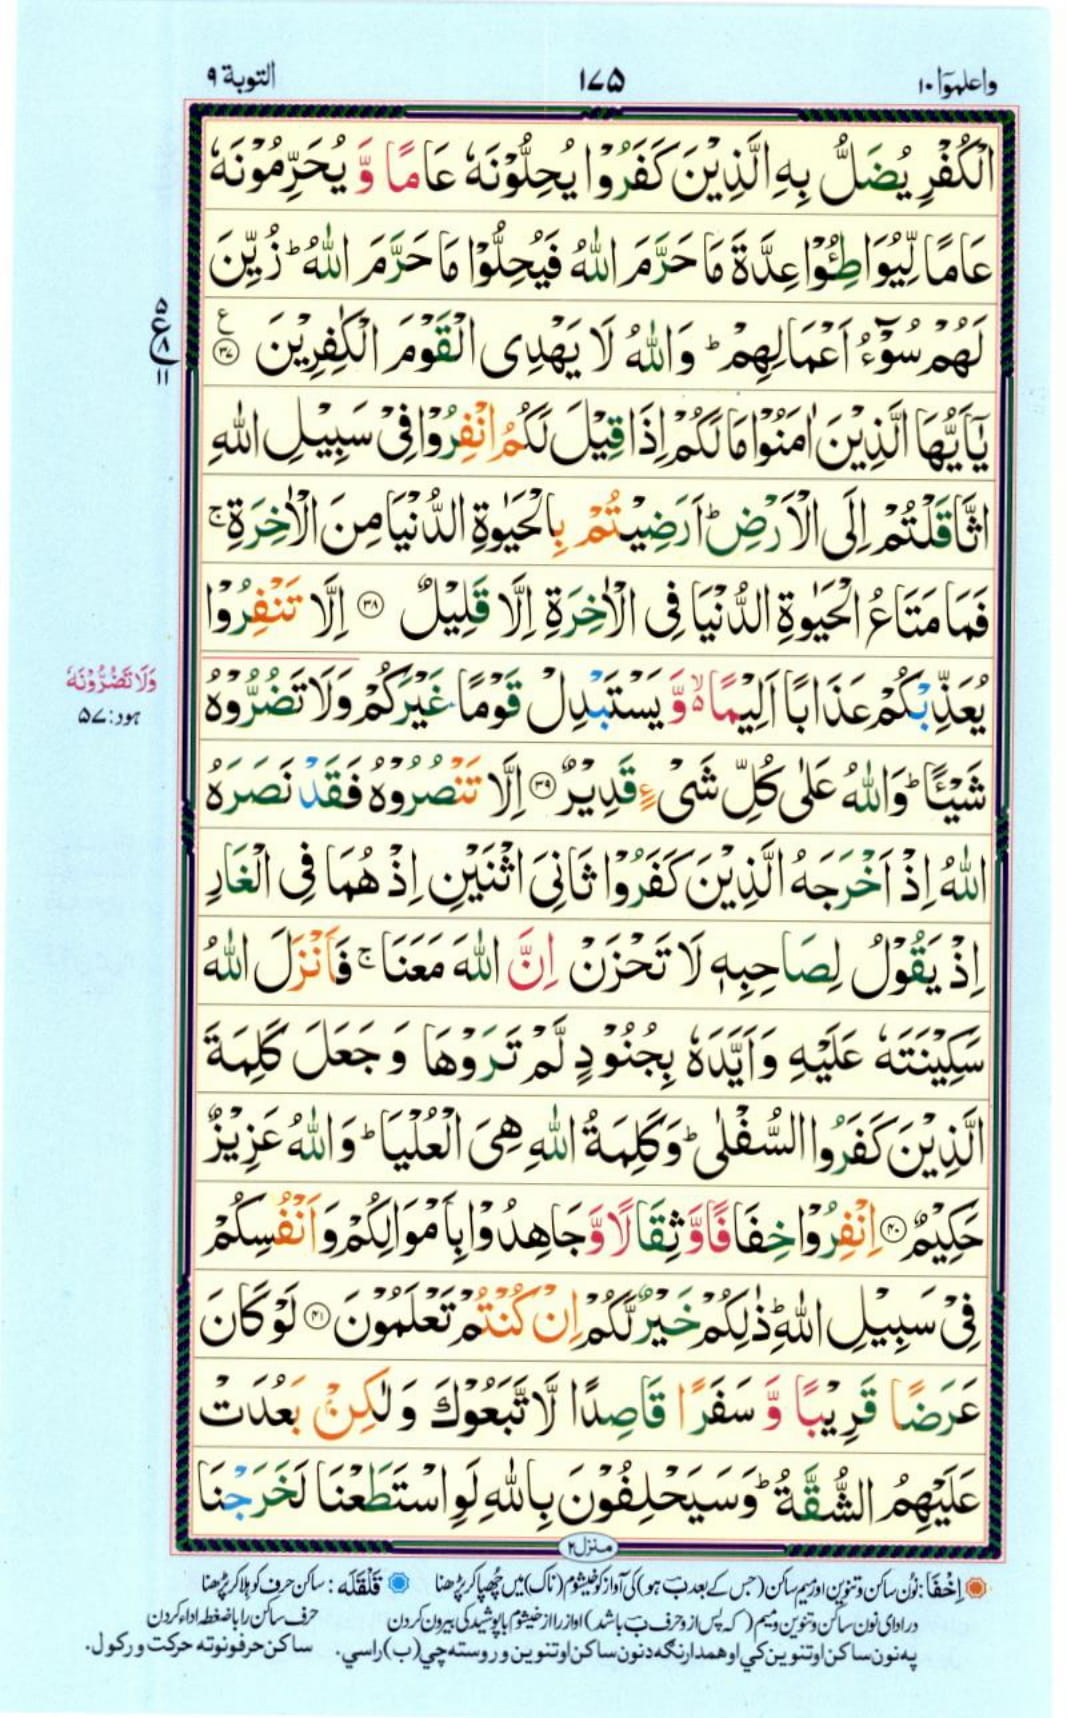 واعلموٓا ١٠
١٧٥
التوبة ٩
الْكُفْرِ يُضَلُّ بِهِ الَّذِيْنَ كَفَرُوْا يُحِلُّوْنَهٗ عَامًا وَّ يُحَرِّمُوْنَهٗ
عَامًا لِّيُوَاطِـُٔوْا عِدَّةَ مَا حَرَّمَ اللّٰهُ فَيُحِلُّوْا مَا حَرَّمَ اللّٰهُ ؕ زُيِّنَ
لَهُمْ سُوْٓءُ اَعْمَالِهِمْ ؕ وَاللّٰهُ لَا يَهْدِى الْقَوْمَ الْكٰفِرِيْنَ ﴿٣٧﴾ ع
٥ ع ٨ ١١
يٰۤاَيُّهَا الَّذِيْنَ اٰمَنُوْا مَا لَكُمْ اِذَا قِيْلَ لَكُمُ انْفِرُوْا فِىْ سَبِيْلِ اللّٰهِ
اثَّاقَلْتُمْ اِلَى الْاَرْضِ ؕ اَرَضِيْتُمْ بِالْحَيٰوةِ الدُّنْيَا مِنَ الْاٰخِرَةِ ۚ
فَمَا مَتَاعُ الْحَيٰوةِ الدُّنْيَا فِى الْاٰخِرَةِ اِلَّا قَلِيْلٌ ﴿٣٨﴾ اِلَّا تَنْفِرُوْا
يُعَذِّبْكُمْ عَذَابًا اَلِيْمًا ۙ۬ وَّ يَسْتَبْدِلْ قَوْمًا غَيْرَكُمْ وَلَا تَضُرُّوْهُ
وَلَا تَضُرُّوْنَهٗ
هود: ٥٧
شَيْـًٔا ؕ وَاللّٰهُ عَلٰى كُلِّ شَىْءٍ قَدِيْرٌ ﴿٣٩﴾ اِلَّا تَنْصُرُوْهُ فَقَدْ نَصَرَهُ
اللّٰهُ اِذْ اَخْرَجَهُ الَّذِيْنَ كَفَرُوْا ثَانِىَ اثْنَيْنِ اِذْ هُمَا فِى الْغَارِ
اِذْ يَقُوْلُ لِصَاحِبِهٖ لَا تَحْزَنْ اِنَّ اللّٰهَ مَعَنَا ۚ فَاَنْزَلَ اللّٰهُ
سَكِيْنَتَهٗ عَلَيْهِ وَاَيَّدَهٗ بِجُنُوْدٍ لَّمْ تَرَوْهَا وَ جَعَلَ كَلِمَةَ
الَّذِيْنَ كَفَرُوا السُّفْلٰى ؕ وَكَلِمَةُ اللّٰهِ هِىَ الْعُلْيَا ؕ وَاللّٰهُ عَزِيْزٌ
حَكِيْمٌ ﴿٤٠﴾ اِنْفِرُوْا خِفَافًا وَّ ثِقَالًا وَّ جَاهِدُوْا بِاَمْوَالِكُمْ وَاَنْفُسِكُمْ
فِىْ سَبِيْلِ اللّٰهِ ؕ ذٰلِكُمْ خَيْرٌ لَّكُمْ اِنْ كُنْتُمْ تَعْلَمُوْنَ ﴿٤١﴾ لَوْ كَانَ
عَرَضًا قَرِيْبًا وَّ سَفَرًا قَاصِدًا لَّا تَّبَعُوْكَ وَ لٰكِنْۢ بَعُدَتْ
عَلَيْهِمُ الشُّقَّةُ ؕ وَسَيَحْلِفُوْنَ بِاللّٰهِ لَوِ اسْتَطَعْنَا لَخَرَجْنَا
منزل ٢
اِخْفَا: نُون ساکن و تنوین اور میم ساکن (جس کے بعد بَ ہو) کی آواز کو خیشوم (ناک) میں چھپا کر پڑھنا قَلْقَلَه: ساکن حرف کو ہلا کر پڑھنا
در ادای نون ساکن و تنوین و میم (که پس از و حرف بَ باشد) اواز را از خیشوم با پوشیدگی بیرون کردن حرف ساکن را با ضغطه اداء کردن
په نون ساکن او تنوین کي او همدارنگه د نون ساکن او تنوین وروسته چي (ب) راسي. ساکن حرفونو ته حرکت ورکول.